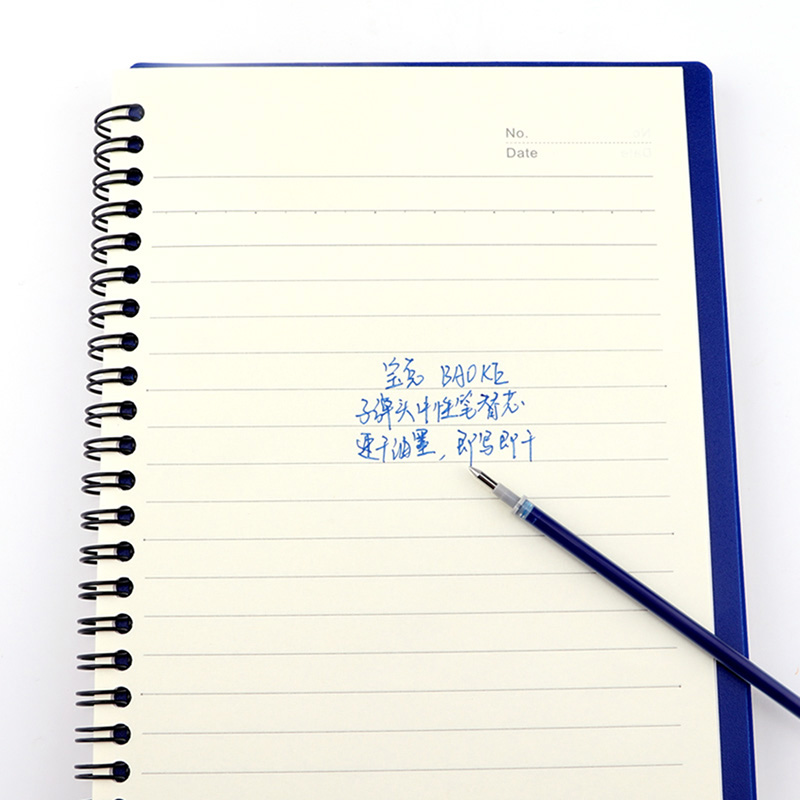 No.
Date
宝克 BAOKE
子弹头中性笔替芯
速干油墨，即写即干